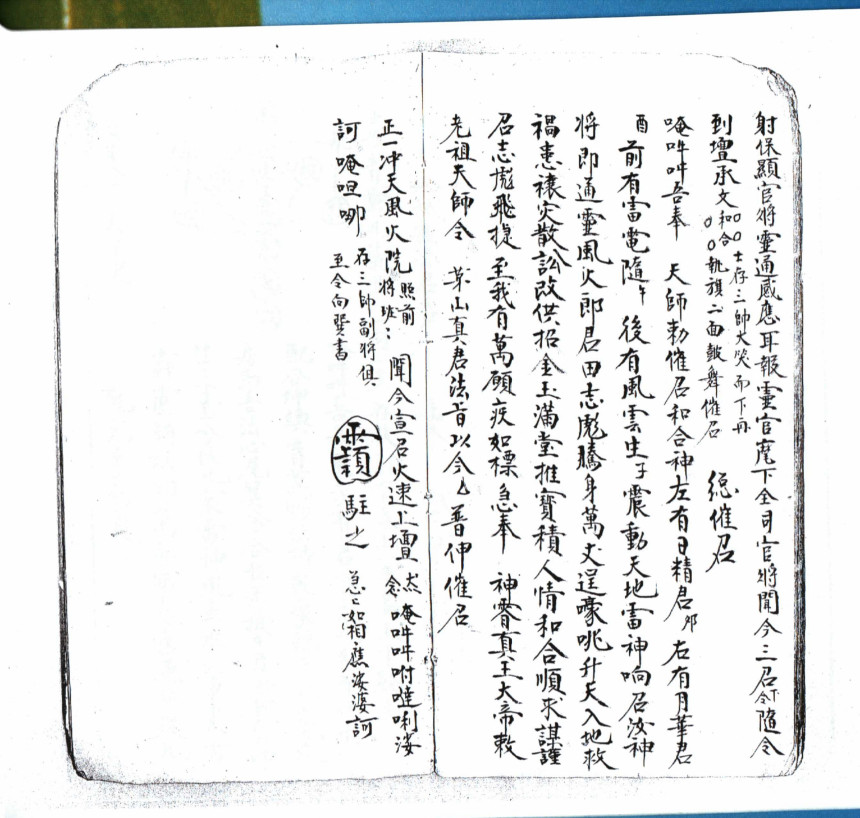 射保顯官將靈通感應耳報靈官麾下全司官將聞今三召令下隨令
到壇承文和合士存三帥大笑而下再執旗二面皷舞催召 總催召
唵吽吽吾奉 天師勅催召和合神左有日精君卯右有月華君
酉前有雷電隨午後有風雲生子震動天地雷神响召汝神
將即通靈風火郎君田志彪騰身萬丈逞豪咣升天入地救
禍患禳灾散訟改供招金玉滿堂推寶積人情和合順求謀謹
召志彪飛捷至我有萬願疾如標急奉 神霄真王大帝敕
老祖天師令 葉山真君法旨以今普伸催召
正一冲天風火院照前將班 聞今宣召火速上壇 念唵吽吽咐噠唎娑
訶唵呾哪 存三帥副將俱至令向巽書 駐之 急急 應娑婆訶